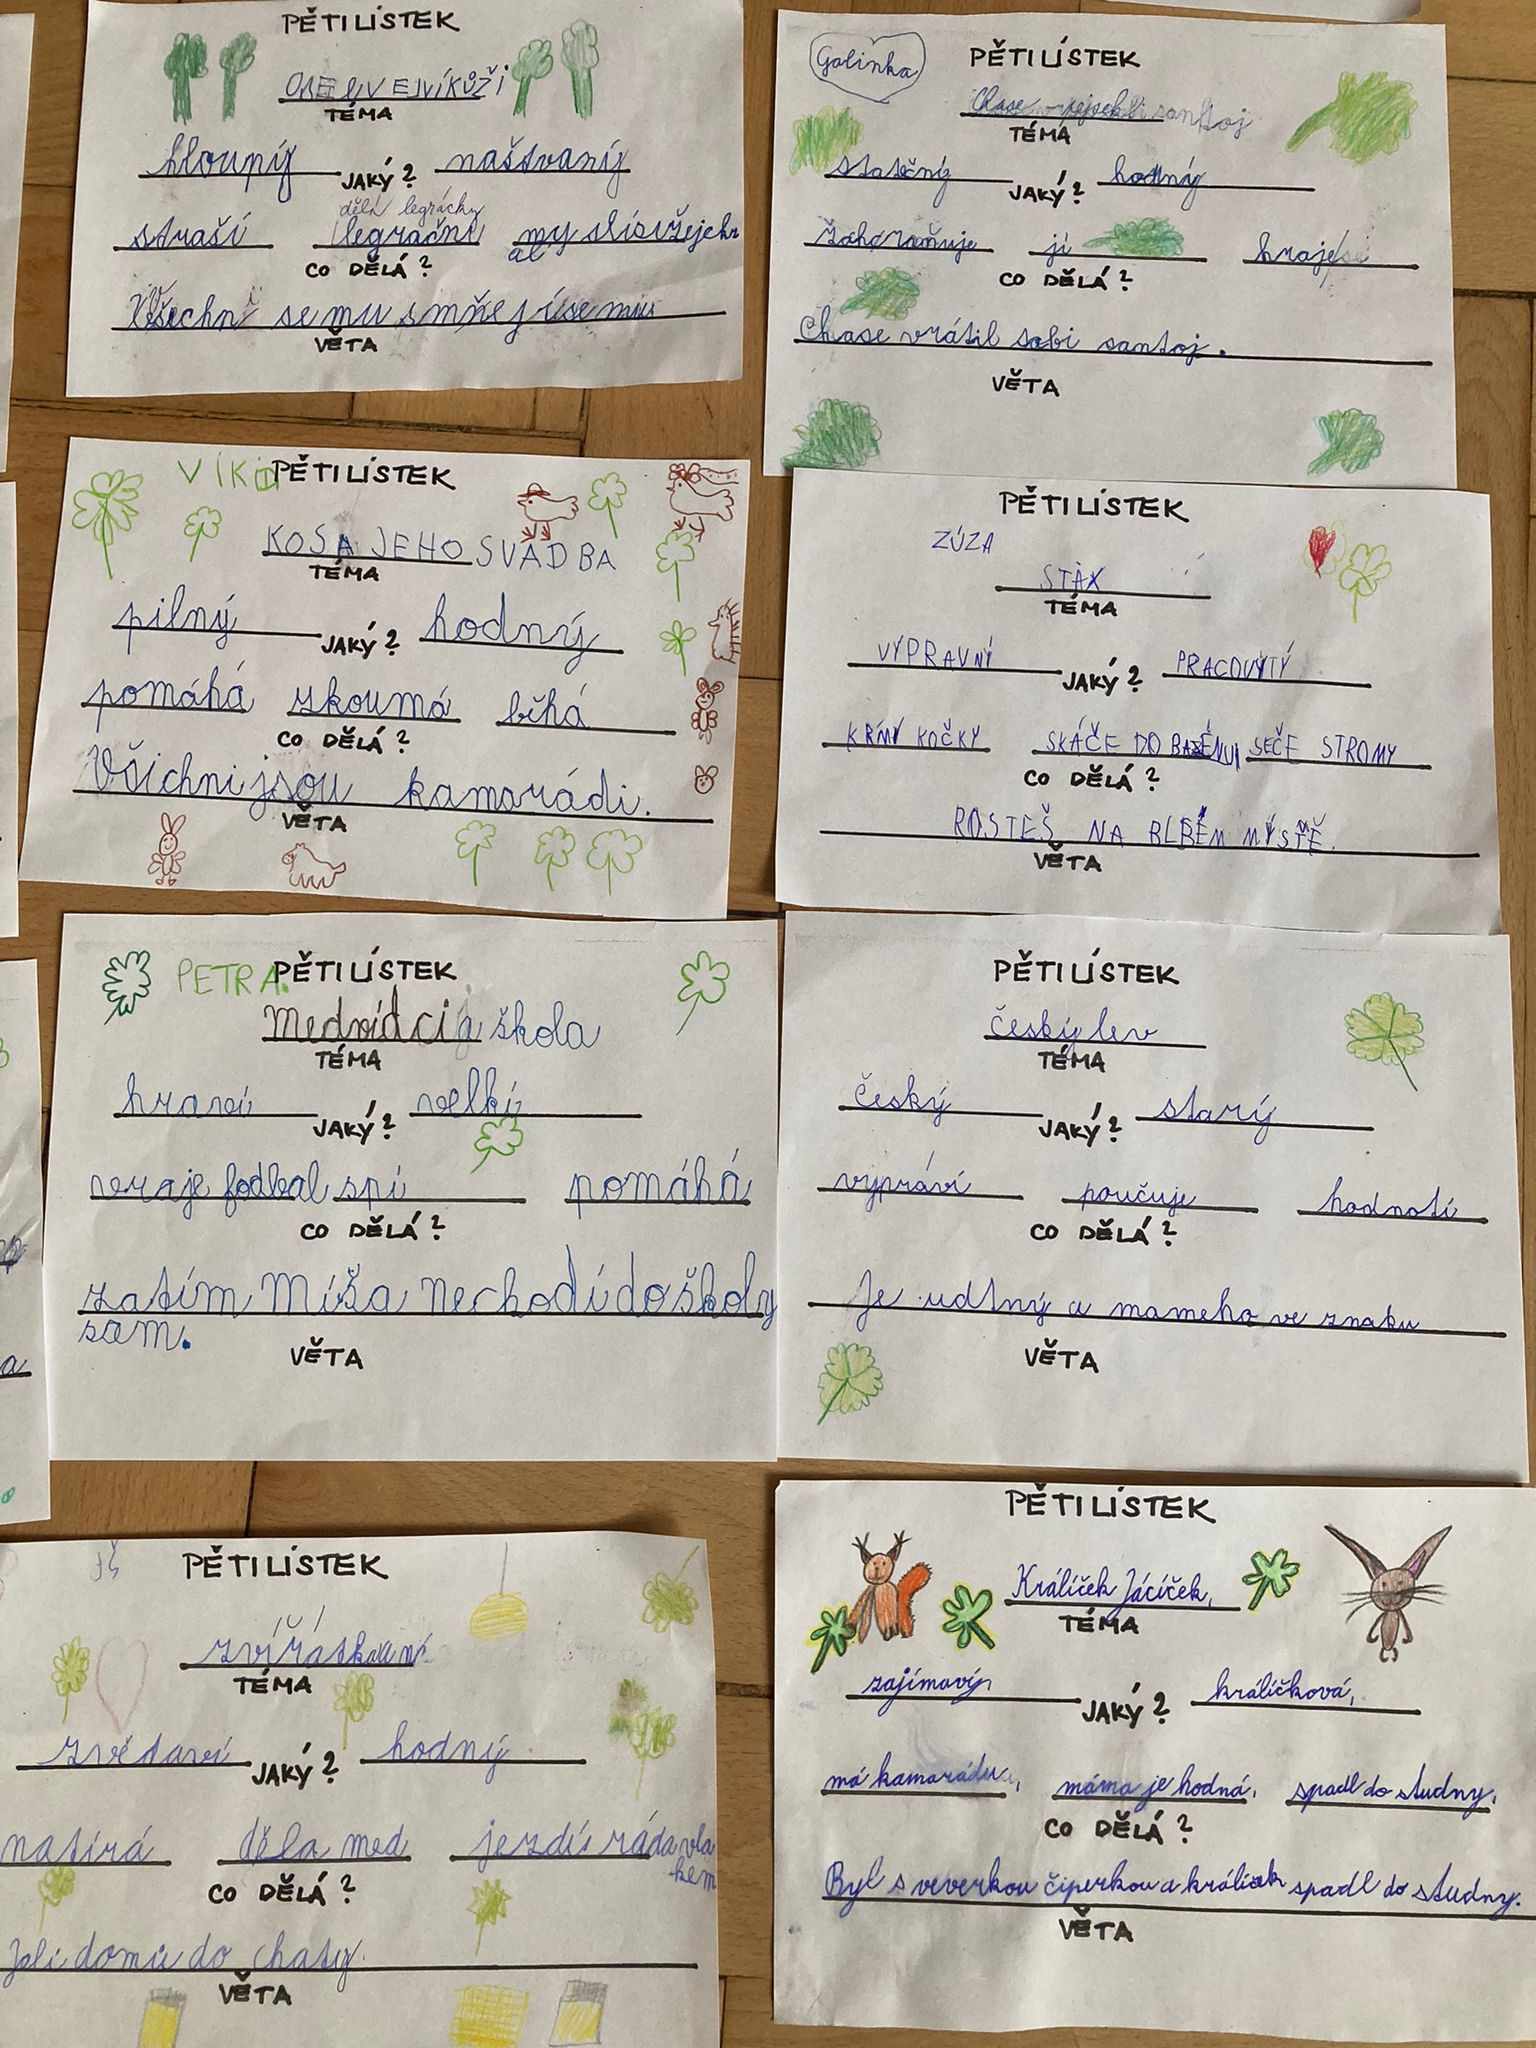 PĚTILÍSTEK
TÉMA
hloupý JAKÝ? naštvaný
dělá legrácky
straší legrační
CO DĚLÁ?
se mu
VĚTA
Galinka
PĚTILÍSTEK
Chase santoj
TÉMA
statečný JAKÝ? hodný
jí hraje si
CO DĚLÁ?
Chase vrátil sobi santoj.
VĚTA
VÍKI PĚTILÍSTEK
KOSA JEHO SVADBA
TÉMA
pilný JAKÝ? hodný
pomáhá zkoumá běhá
CO DĚLÁ?
Všichni jsou kamarádi.
VĚTA
PĚTILÍSTEK
ZÚZA
TÉMA
VÝPRAVNÝ JAKÝ? PRACOVYTÝ
KRMÝ KOČKY SKÁČE DO BAZÉNU SEČE STROMY
CO DĚLÁ?
ROSTEŠ NA BLBÉM MÝSTĚ.
VĚTA
PETRA. PĚTILÍSTEK
Medvídci a škola
TÉMA
hraví JAKÝ? velkí
vraje fodbal spí pomáhá
CO DĚLÁ?
zatím Míša nechodí do školy
sám.
VĚTA
PĚTILÍSTEK
Český lev
TÉMA
český JAKÝ? starý
vypráví poučuje hodnotí
CO DĚLÁ?
Je udtný a mameho ve znaku
VĚTA
PĚTILÍSTEK
TÉMA
zvědaví JAKÝ? hodný
natírá děla med jezdí ráda vla
kem
CO DĚLÁ?
Jeli domů do chaty.
VĚTA
PĚTILÍSTEK
Králíček Jácíček,
TÉMA
zajímavý, JAKÝ? králíčková,
má kamarádu, máma je hodná, spadl do studny,
CO DĚLÁ?
Byl s veverkou čiperkou a králíček spadl do studny.
VĚTA